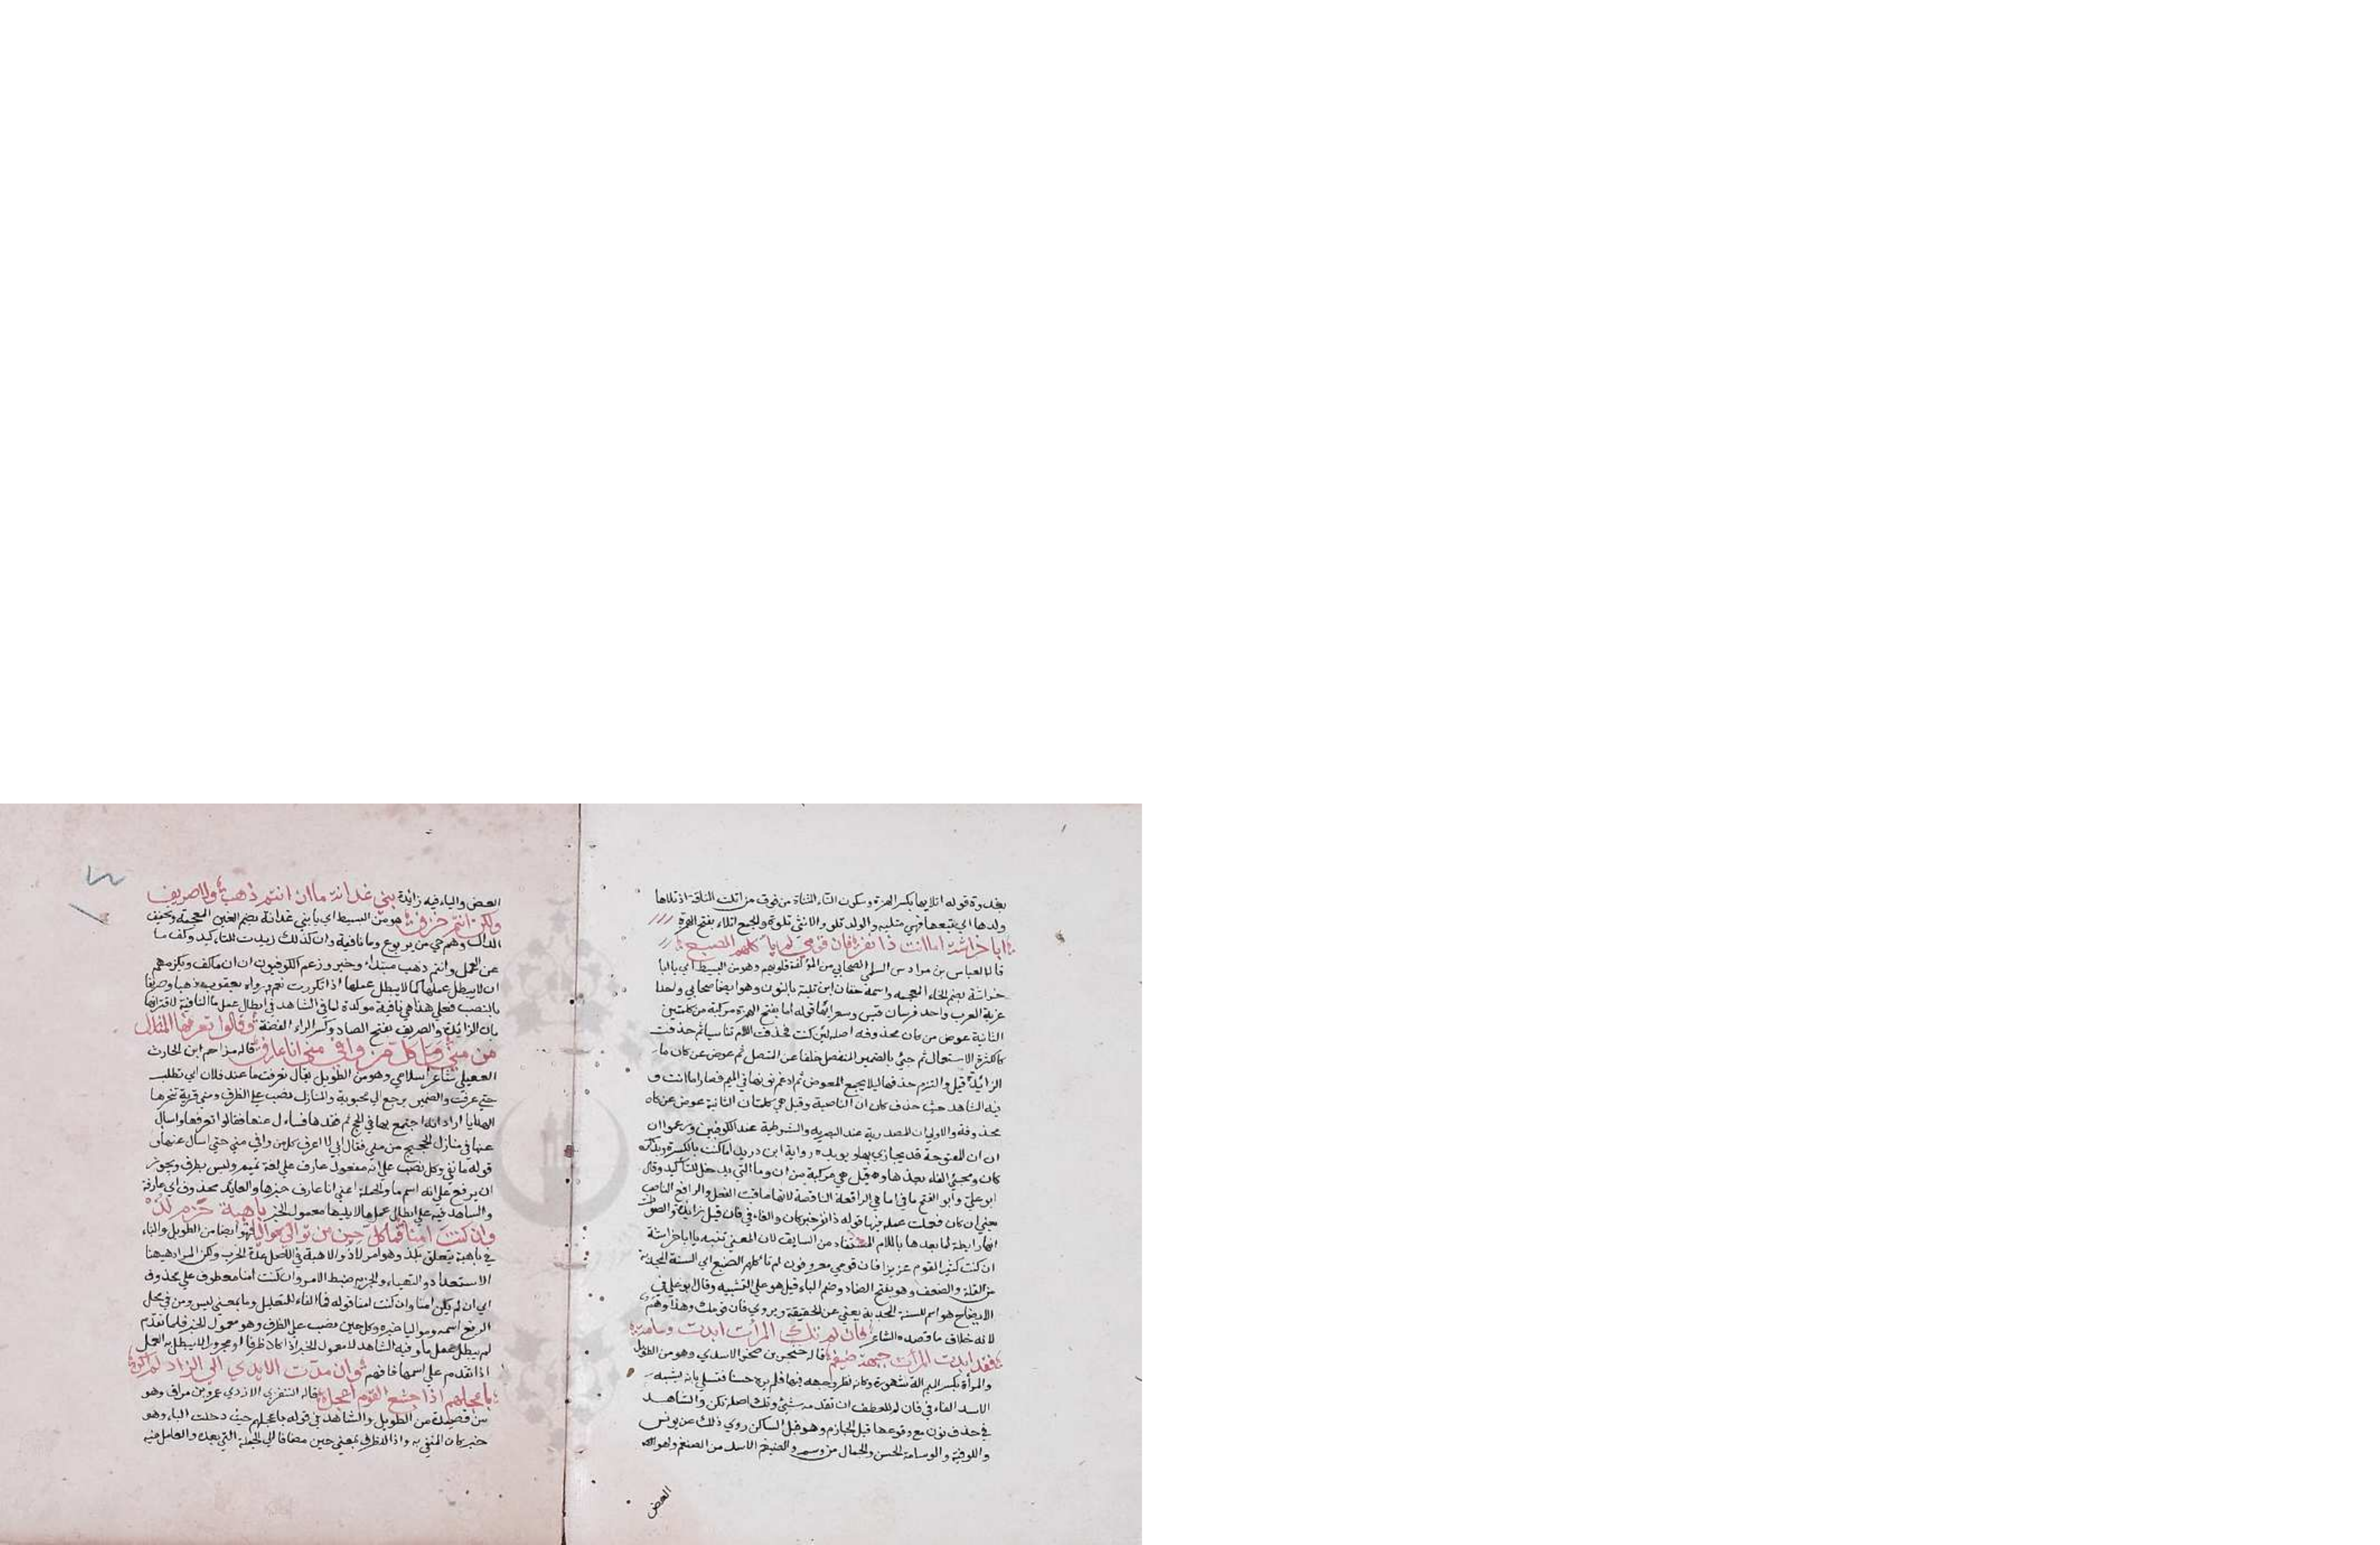 بغدوة قوله اتلايها بكسر الهمزة وسكون التاء المثناة من فوق من اتلت الناقة اذ تلاها
ولدها اي تبعها فهي متلية والولد تلو والانثى تلوة والجمع اتلاء بفتح الهمزة
ابا خراشة اما انت ذا نفر فان قومي لم تاكلهم الضبع
قاله العباس بن مرداس السلمي الصحابي من المؤلفة قلوبهم وهو من البسيط اي يا ابا
خراشة بضم الخاء المعجمه واسمه خفان ابن ندبة بالنون وهو ايضا صحابي واحد
عربة العرب واحد فرسان قيس وشعرائها قوله اما بفتح الهمزة مركبة من كلمتين
الثانية عوض من كان محذوفه اصله لئن كنت فحذفت اللام ثم حذفت
الاستعمال ثم جيء بالضمير المنفصل خلفا عن المتصل ثم عوض عن كان ما
الزائدة قيل والتزم حذفها ليلا يجمع المعوض ثم ادغم نونها في الميم فصار اما انت و
فيه الشاهد حيث حذف كان الناصبة وقيل هي كلمتان الثانية عوض عن كان
محذوفة والاولى ان المصدرية عند البصريه والشرطية عند الكوفيين وزعموا ان
ان المفتوحة قد يجازي بها ويويده رواية ابن دريد اما كنت بالكسرة
كان ومجيء الفاء بعدها وقيل هي مركبة من ان وما التي يدخل للتاكيد وقال
ابو علي وابو الفتح ما في اما هي الرافعة الناصبة لانها عاقبت الفعل الرافع الناصب
يعني ان كان فعملت عمله فيها قوله ذا نفر خبر كان والفاء في فان قيل زايدة والصواب
انها رابطة لما بعدها بالكلام المستفاد من السابق لان المعنى تنبه يا ابا خراشة
ان كنت كثير القوم عزيزا فان قومي معروفون لم تاكلهم الضبع اي السنة المجدبة
من القلة والضعف وهو بفتح الضاد وضم الباء قيل هو على التشبيه وقال ابو علي في
الايضاح هو اسم للسنة المجدبة يعني عن الحقيقة ويروي فان قومك وهذا وهم
لانه خلاف ما قصده الشاعر فان لم تك المرآت ابدت وسامة
فقد ابدت المرآت جبهة ضيغم قاله خنجر بن صخر الاسدي وهو من الطويل
والمرآة بكسر الميم الة مشهورة وكانه نظر وجهه فيها فلم يره حسنا فتسلى بانه يشبه
الاسد الفاء في فان لم للعطف ان تقدمه شيء وتك اصله تكن والشاهد
في حذف نون مع وقوعها قبل الجازم وهو قبل الساكن روي ذلك عن يونس
والكوفية والوسامة الحسن والجمال من وسم والضيغم الاسد من الضغم وهو
العض
العض والياء فيه زائدة بني غدانة ما ان انتم ذهب ولا صريف
ولكن انتم خزف هو من البسيط اي يا بني غدانة بضم الغين المعجمة وتخفيف
الدال وهم حي من يربوع وما نافية وان كذلك زيدت للتاكيد وكف ما
عن العمل وانتم ذهب مبتداء وخبر وزعم الكوفيون ان ان
ان لا يبطل عملها كما لا يبطل عملها اذا تكررت نعم رواه يعقوب ذهبا وصريفا
بالنصب فعلى هذا هي نافية موكدة لما في الشاهد في ابطال عمل ما النافية لاقترانها
بان الزائدة والصريف بفتح الصاد وكسر الراء الفضة وقالوا تعرفها المنازل
من منى وما كل من وافى منى انا عارف قاله مزاحم ابن الحارث
العقيلي شاعر اسلامي وهو من الطويل يقال تعرفت ما عند فلان اي تطلبت
حتى عرفت والضمير يرجع الي محبوبة والمنازل نصب على الظرف ومنى قرية تنحر بها
الهدايا اراد انه اجتمع بها في الحج ثم فقدها فسأل عنها فقالوا تعرفها واسأل
عنها في منازل الحجيج من منى فقال اني لا اعرف كل من وافى منى حتى اسال عنها و
قوله ما نفي وكل نصب على انه مفعول عارف على لغة تميم وليس بظرف ويجوز
ان يرفع على انه اسم ما والجملة اعني انا عارف خبرها والعايد محذوف اي عارفه
والشاهد فيه على ابطال عملها لا يليها معمول الخبر باهبة حزم لذ
وان كنت امنا فما كل حين من توالي مواليا هو ايضا من الطويل والباء
في باهبة يتعلق بلذ وهو امر لاذ والاهبة في الاصل عدة الحرب ولكن المراد هيهنا
الاستعداد والتهياء والحزم ضبط الامر وان كنت امنا معطوف على محذوف
اي ان لم يكن امنا وان كنت امنا قوله فما الفاء للتعليل وما بمعنى ليس ومن في محل
الرفع اسمه ومواليا خبره وكل حين نصب على الظرف وهو معمول للخبر فلما تقدم
لم يبطل عمل ما وفيه الشاهد لا معمول الخبر اذا كان ظرفا او مجرورا لا يبطل به العمل
اذا تقدم على اسمها فافهم وان مدت الايدي الى الزاد لم اكن
باعجلهم اذا جشع القوم اعجل قاله الشنفري الازدي عمرو بن براق وهو
من قصيدة من الطويل والشاهد في قوله باعجلهم حيث دخلت الباء وهو
خبر كان المنفي به واذا للظرف بمعنى حين مضافا الى الجملة التي بعده والعامل فيه